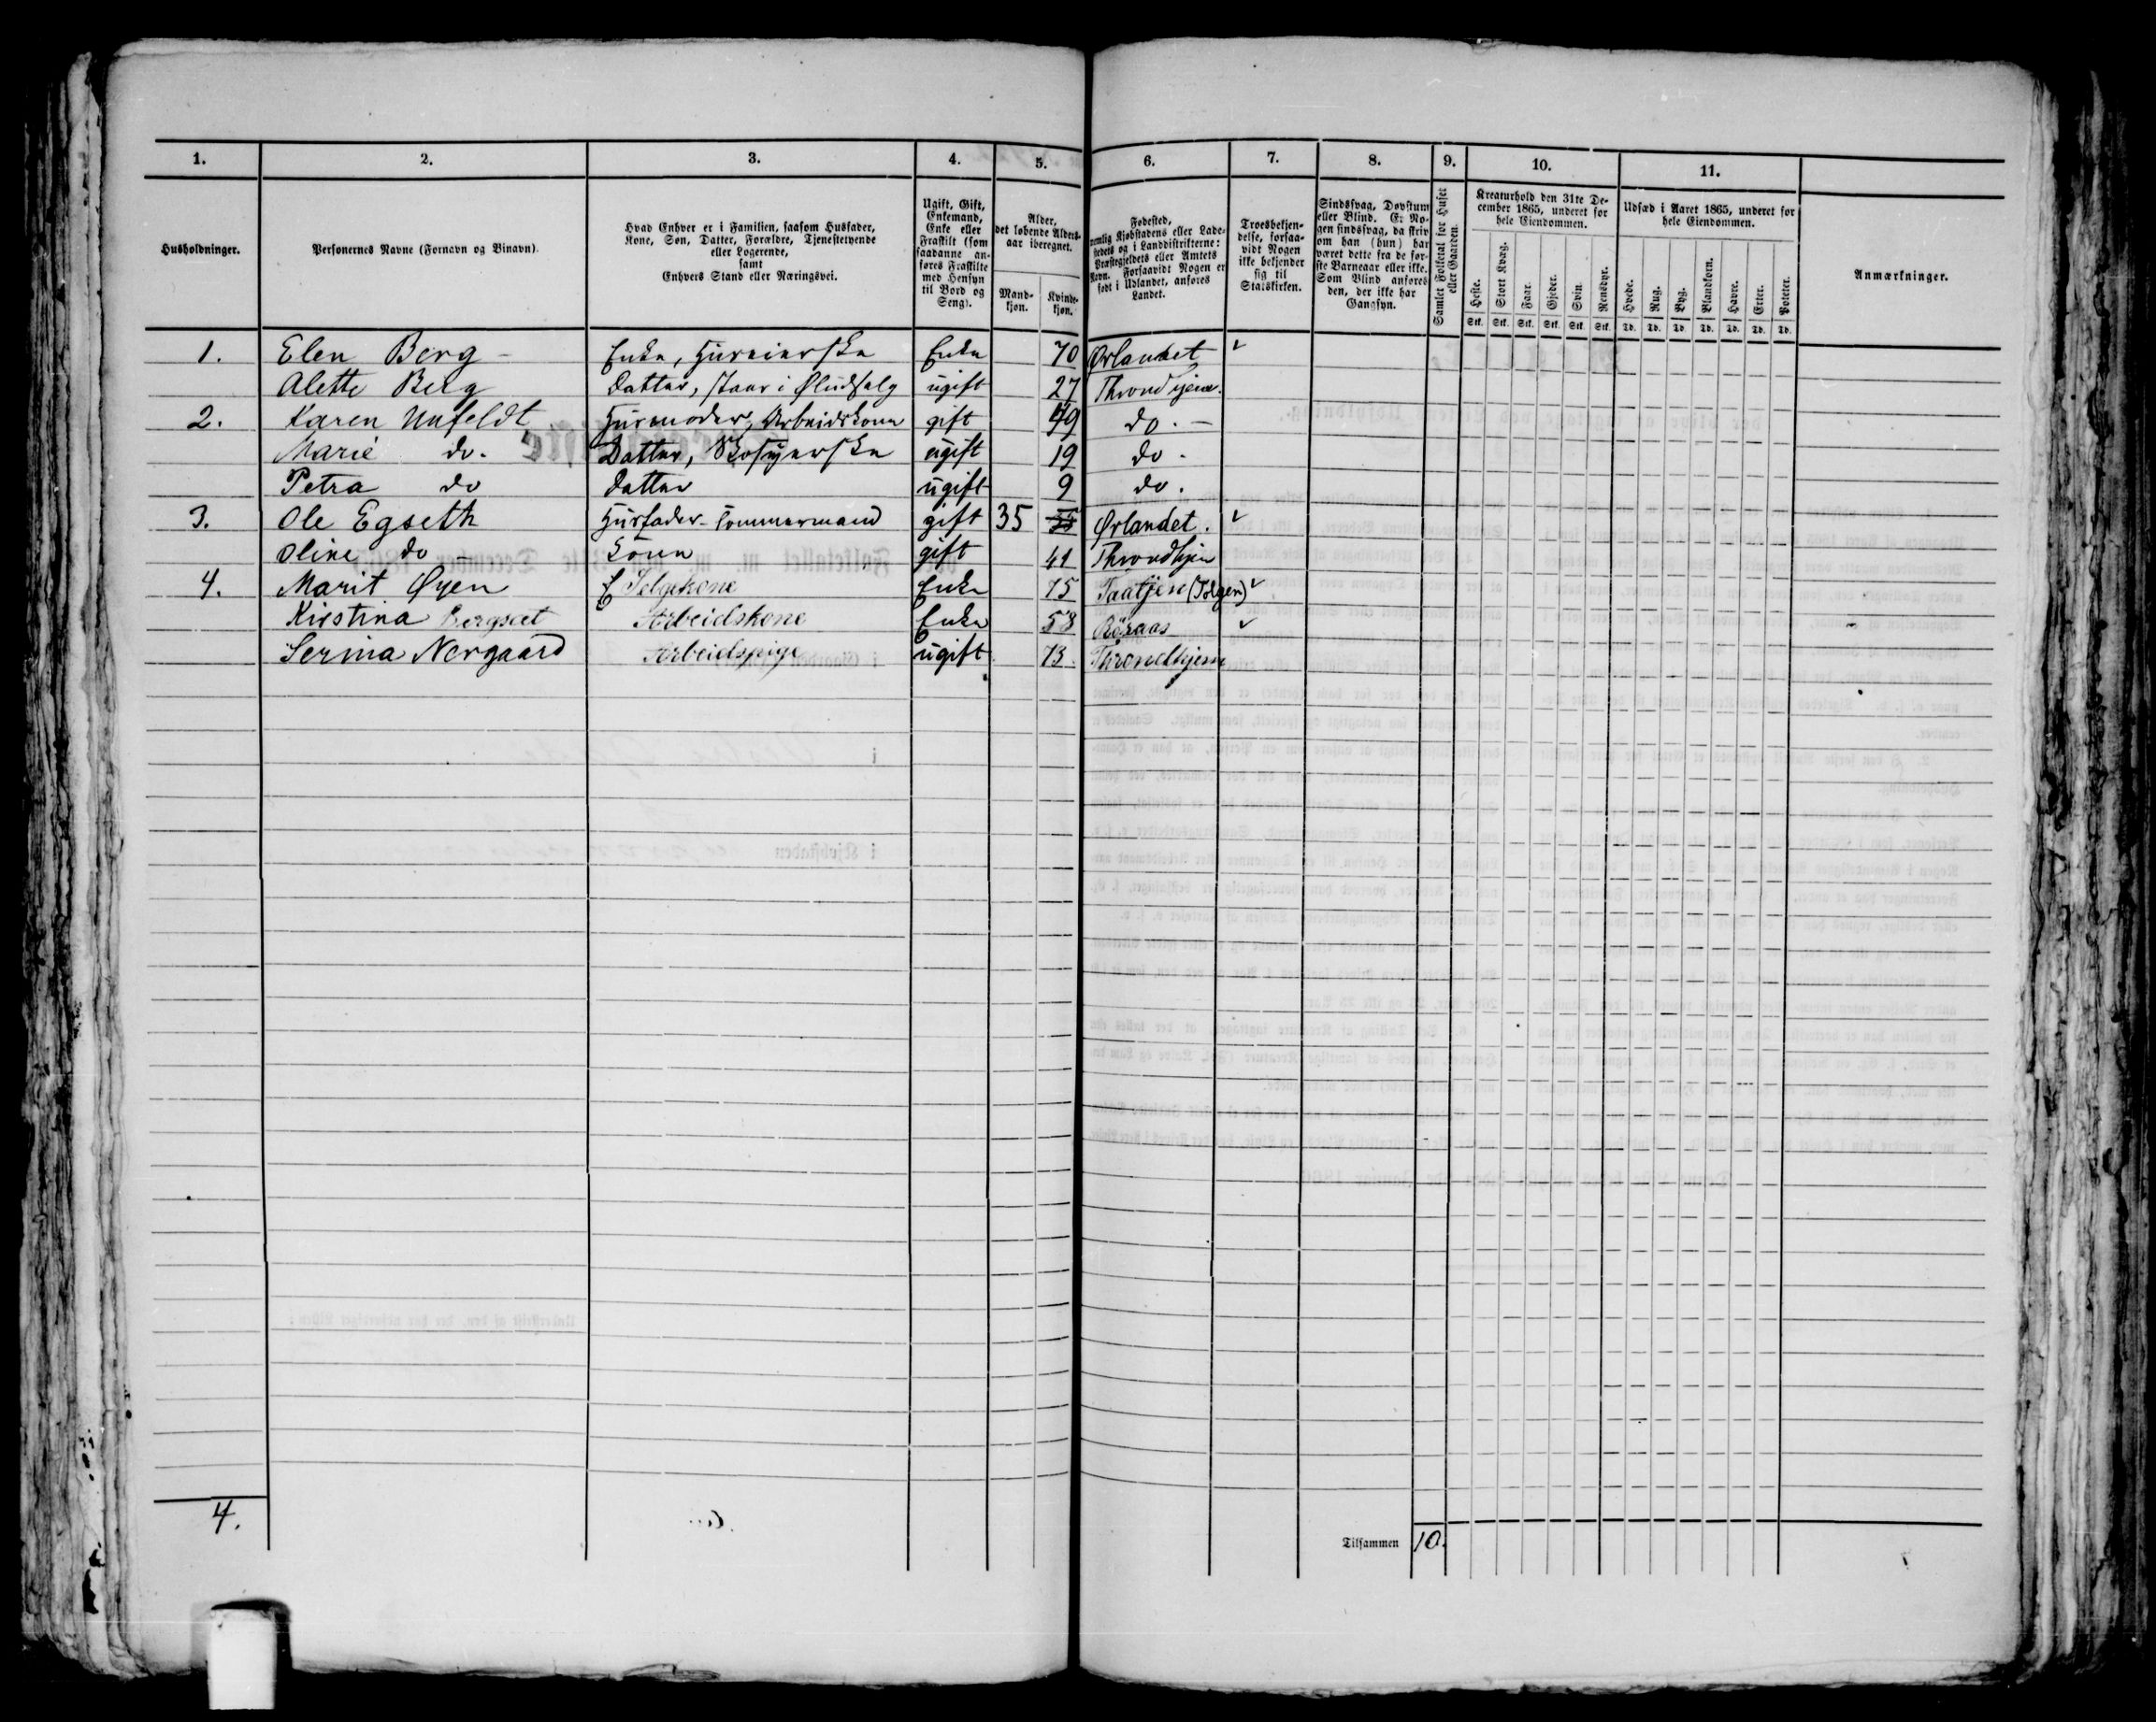 1. 2. 3. 4. 5. 6. 7. 8. 9. 10. 11.
Husholdninger.
Personernes Navne (Fornavn og Binavn).
Hvad Enhver er i Familien, saasom Husfader,
Kone, Søn, Datter, Forældre, Tjenestetyende
eller Logerende,
samt
Enhvers Stand eller Næringsvei.
Ugift, Gift,
Enkemand,
Enke eller
Fraskilt (som
saadanne an-
føres Fraskilte
med Hensyn
til Bord og
Seng).
Alder,
det løbende Alders-
aar iberegnet.
Mand-
kjøn.
Kvinde-
kjøn.
Fødested,
nemlig Kjøbstadens eller Lade-
stedets og i Landdistrikterne:
Præstegjeldets eller Amtets
Navn. Forsaavidt Nogen er
født i Udlandet, anføres
Landet.
Troesbekjen-
delse, forsaa-
vidt Nogen
ikke bekjender
sig til
Statskirken.
Sindssvag, Døvstum
eller Blind. Er No-
gen sindssvag, da skriv
om han (hun) har
været dette fra de før-
ste Barneaar eller ikke.
Som Blind anføres
den, der ikke har
Gangsyn.
Samlet Folketal for Huset
eller Gaarden.
Kreaturhold den 31te De-
cember 1865, underet for
hele Eiendommen.
Heste. Stort Kvæg. Faar. Gjeder. Svin. Rensdyr.
Stk. Stk. Stk. Stk. Stk. Stk.
Udsæd i Aaret 1865, underet for
hele Eiendommen.
Hvede. Rug. Byg. Blandkorn. Havre. Erter. Poteter.
Td. Td. Td. Td. Td. Td. Td.
Anmærkninger.
1. Elen Berg - Enke, Huseierske Enke 70 Ørlandet
Alette Berg Datter, staar i Øludsalg ugift 27 Throndhjem.
2. Karen Unfeldt Husmoder, Arbeidskone gift 49 do. -
Marie do. Datter, Skosyerske ugift 19 do.
Petra do Datter ugift 9 do.
3. Ole Egseth Husfader - Tømmermand gift 35 Ørlandet.
Oline do - Kone gift 41 Throndhjem
4. Marit Øyen Selgekone Enke 75 (Tolgen)
Kirstina Bergset Arbeidskone Enke 58 Röraas
Serina Norgaard Arbeidspige ugift 73. Throndhjem
4.
Tilsammen 10.